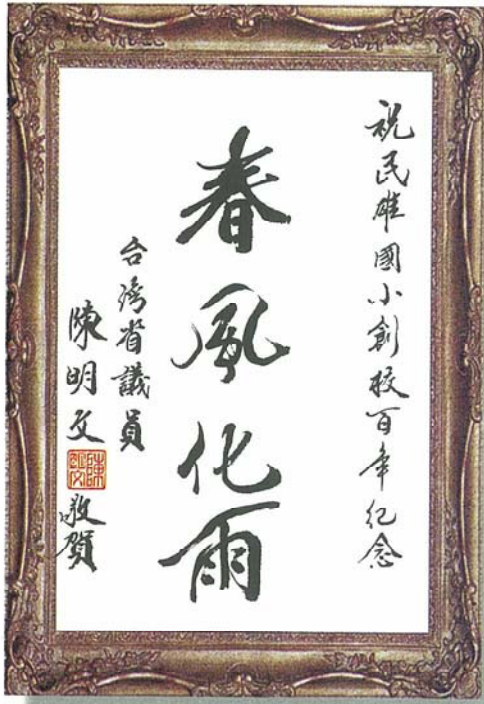 祝民雄國小創校百年紀念
春風化雨
台灣省議員
陳明文 敬賀